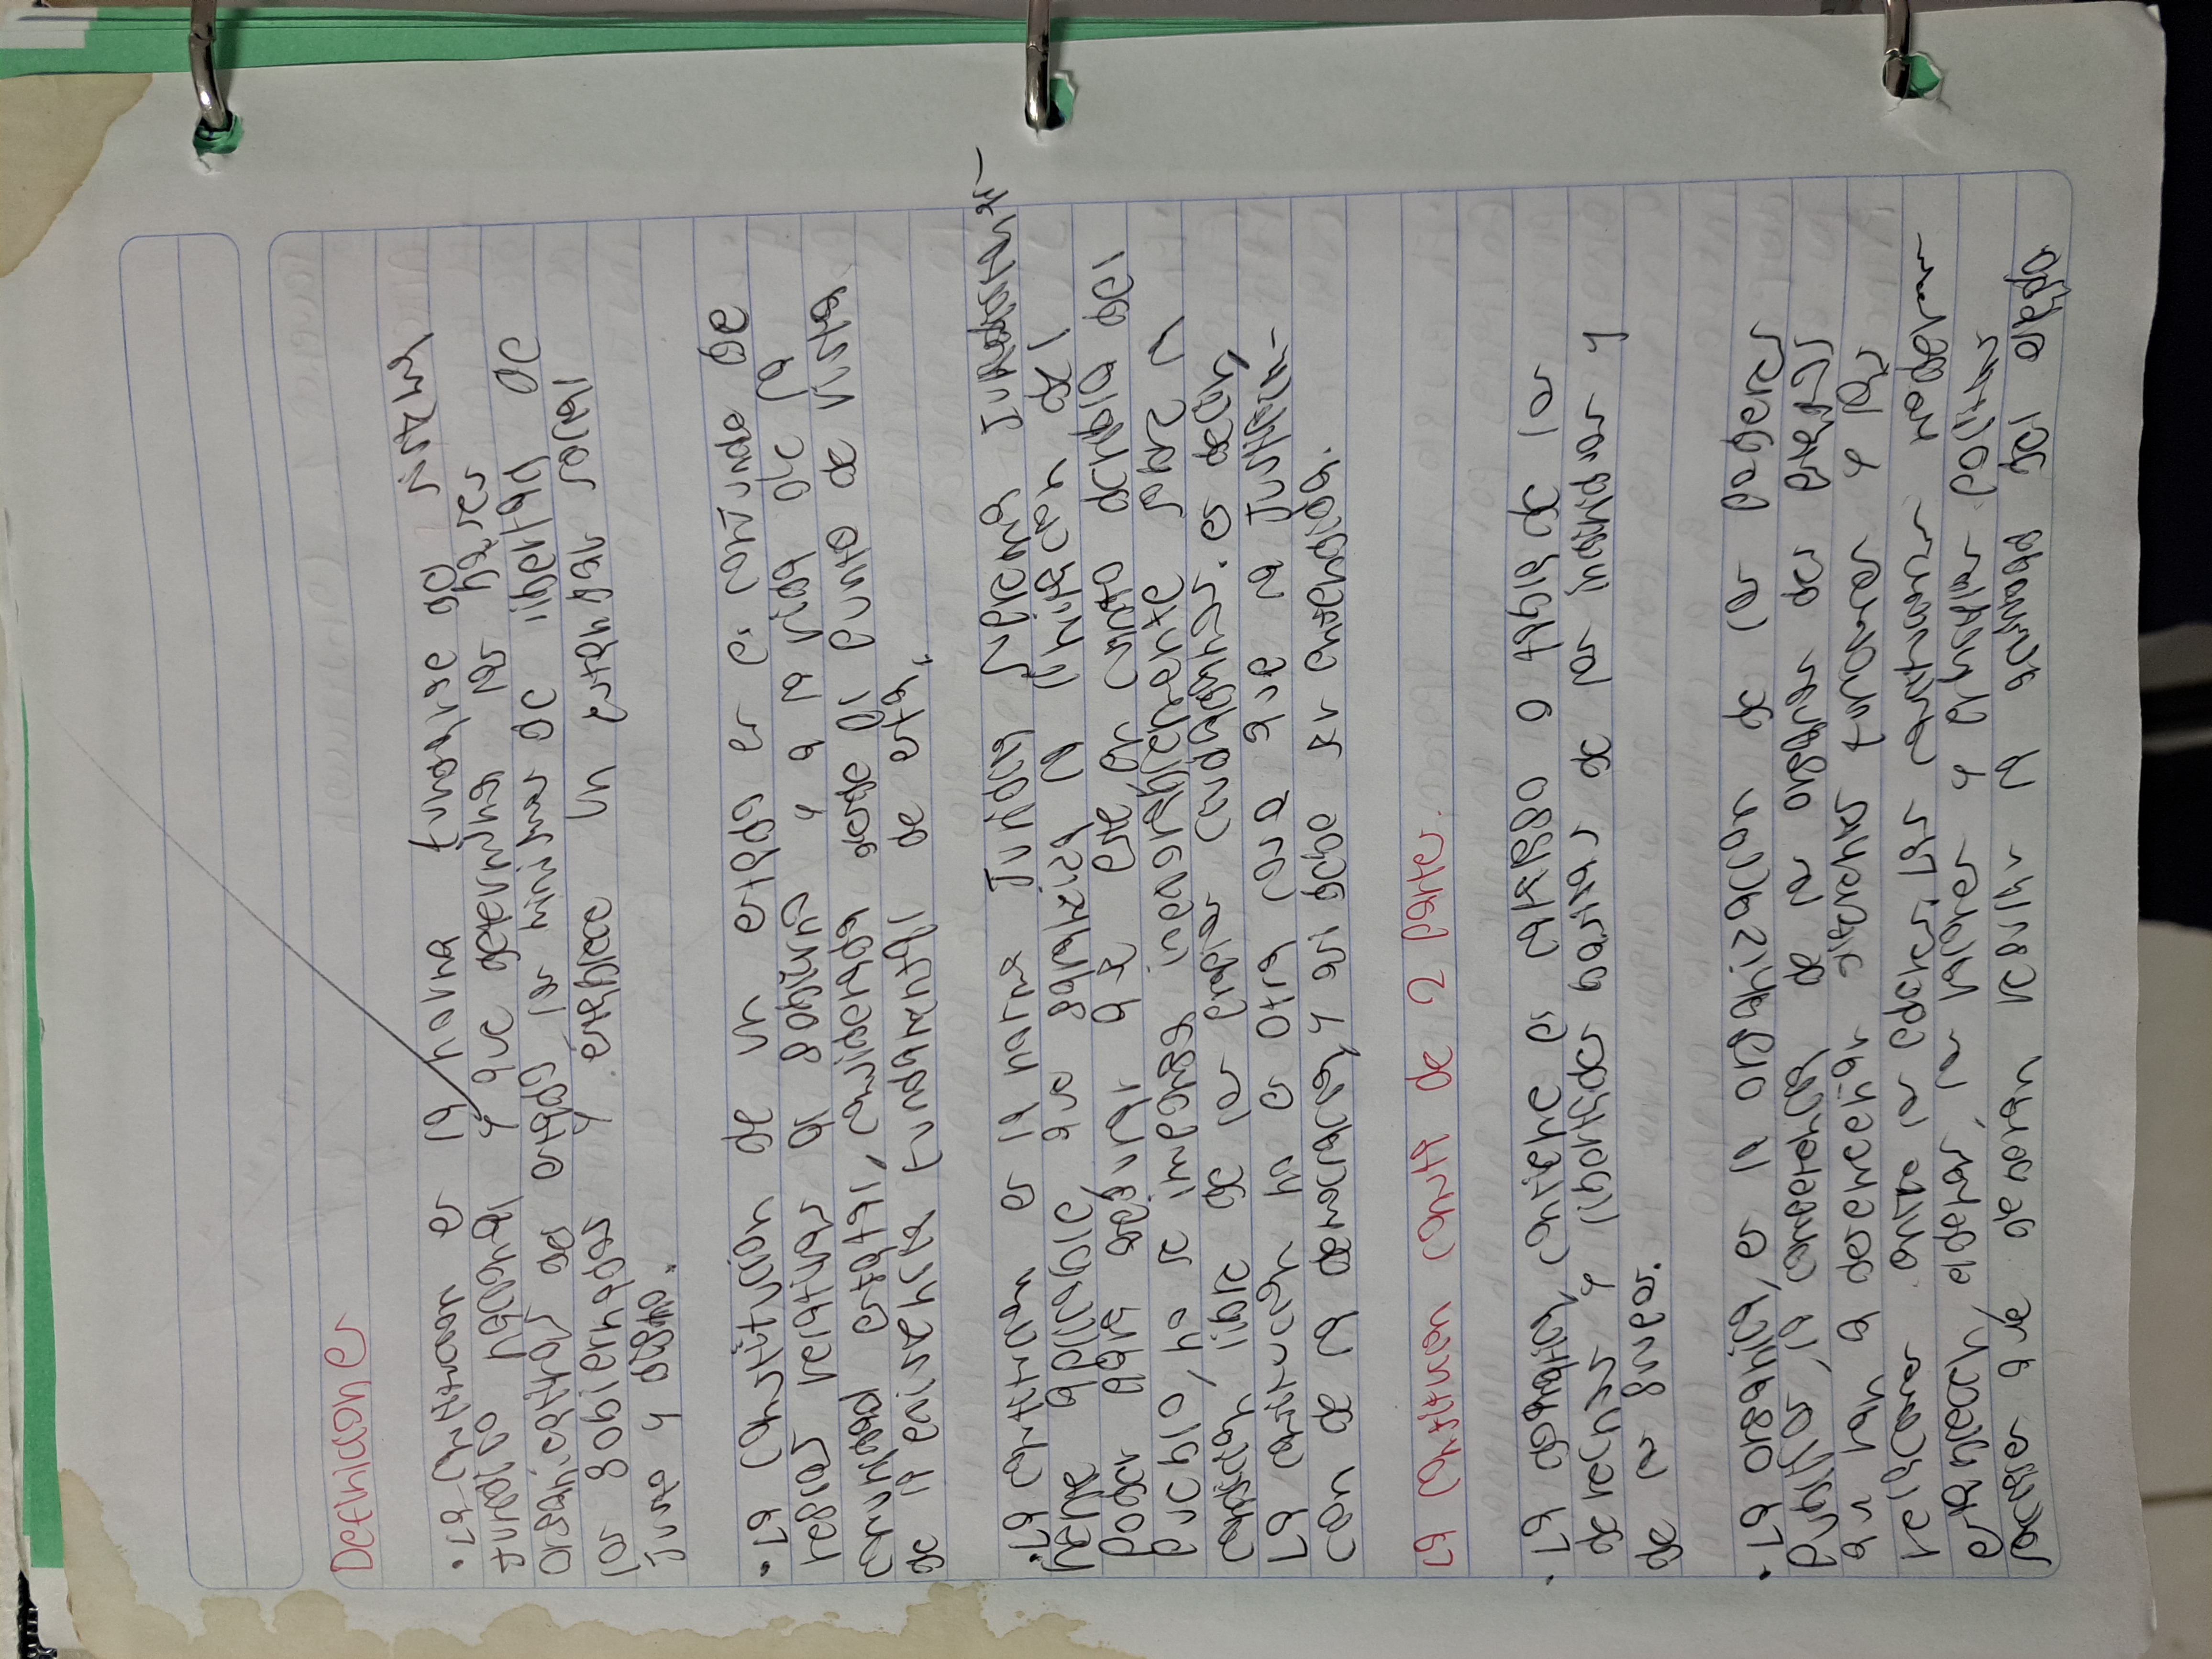 Definicion e
• La Constitucion es la norma fundante del sistema
Juridico nacional y que determina las bases
organizativas del estado los minimos de libertad de
los gobiernados y establece un estandar social
Justo y digno.
• La Constitucion de un estado es el conjunto de
reglas relativas al gobierno y a la vida de la
comunidad estatal, considerada desde el punto de vista
de la existencia fundamental de esta.
• La Constitucion es la norma Juridica suprema Jurídicamente-
debe aplicable que garantiza la limitacion del
poder para asegurar que este en cuanto deriva del
pueblo, no se imponga inexorablemente sobre la
condicion libre de los propios ciudadanos. es decir
La constitucion no es otra cosa que la Juridifica-
cion de la democracia, y asi debe de ser entendida.
La Constitucion consta de 2 partes.
• La dogmatica, contiene el catalogo o tabla de los
derechos y libertades basicas de los individuos y
de los grupos.
• La organica, es la organizacion de los poderes
publicos, la competencia de los organos del poder
que van a desempeñar diferentes funciones y las
relaciones entre los poderes. Las constituciones modernas
establecen además, los valores y principios politicos
sociales que deberan regular la actividad del estado